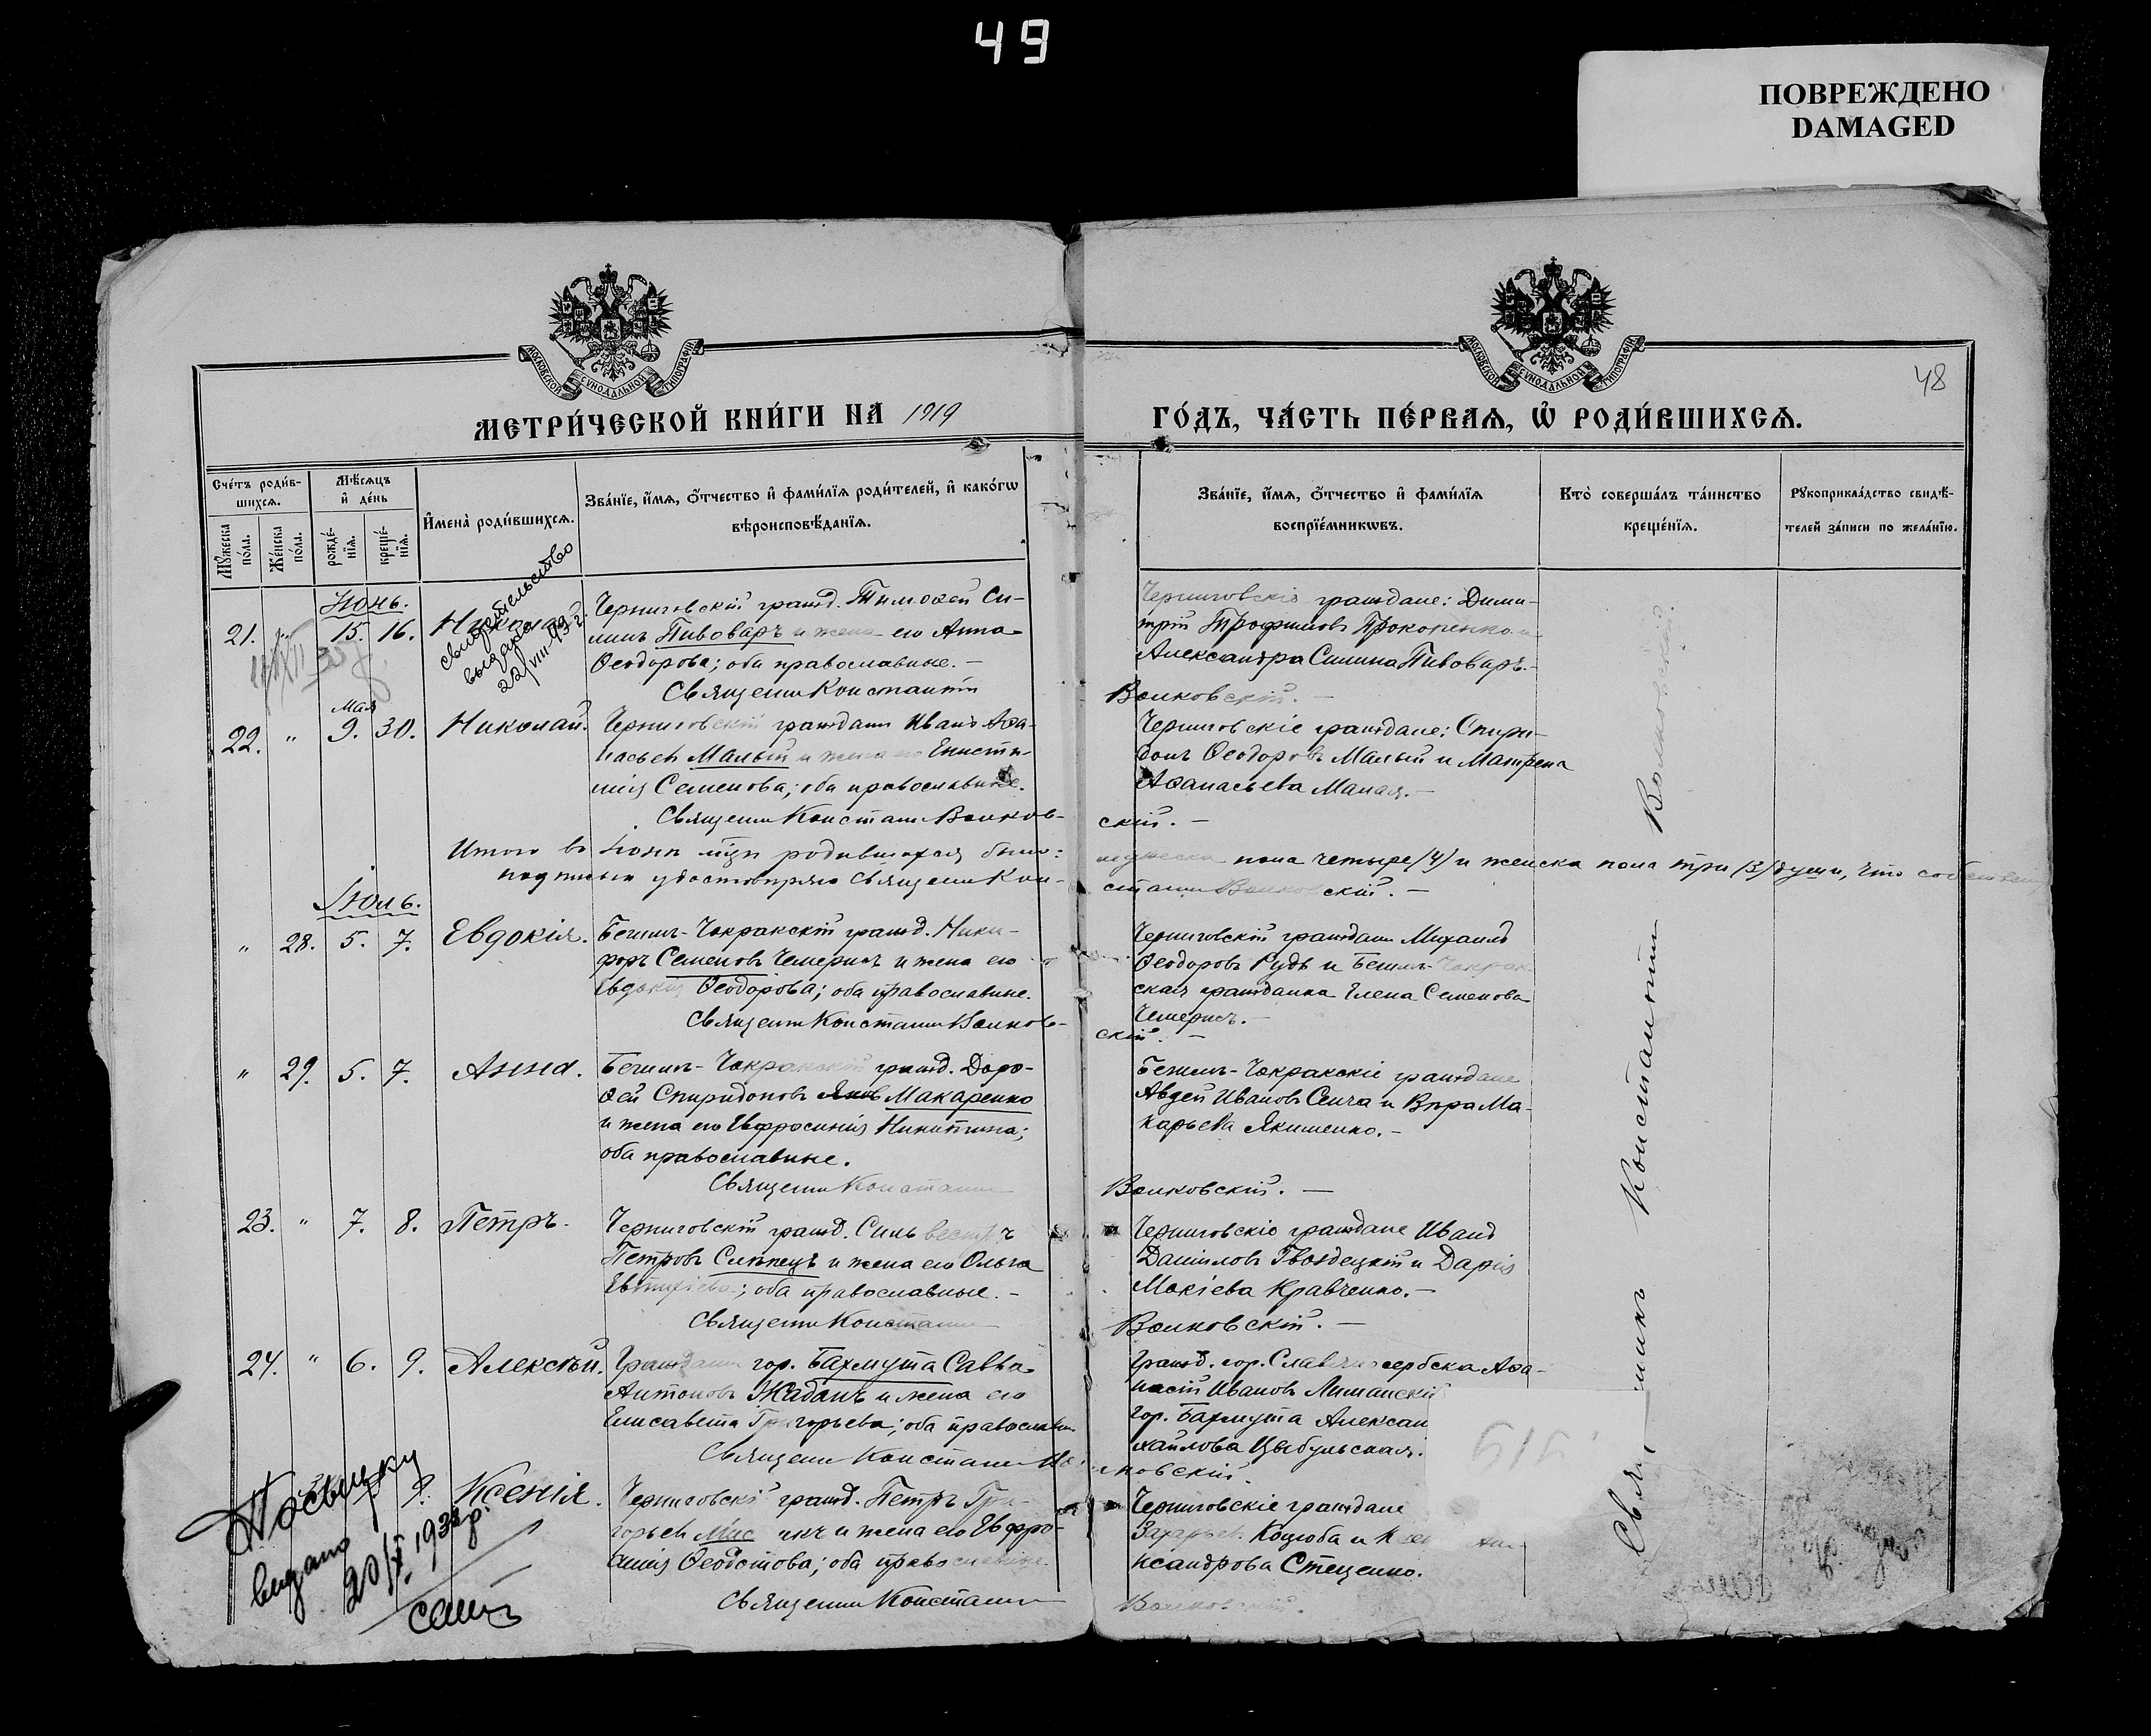 49
ПОВРЕЖДЕНО
DAMAGED
МОСКОВСКОЙ СѴНОДАЛЬНОЙ ТИПОГРАФІИ
МОСКОВСКОЙ СѴНОДАЛЬНОЙ ТИПОГРАФІИ
48
МЕТРИ́ЧЕСКОЙ КНИ́ГИ НА 1919
ГО́ДЪ, ЧА́СТЬ ПЕ́РВАѦ, Ѽ РОДИ́ВШИХСѦ.
Сче́тъ роди́в-
шихсѧ.
Мꙋ́жеска по́ла.
Же́нска по́ла.
Мѣ́сѧцъ и҆ де́нь
рожде́-нїѧ.
креще́-нїѧ.
И҆мена̀ роди́вшихсѧ.
Зва́нїе, и҆́мѧ, ѻ҆́тчество и҆ фами́лїѧ роди́телей, и҆ како́гѡ
вѣроисповѣ́данїѧ.
Зва́нїе, и҆́мѧ, ѻ҆́тчество и҆ фами́лїѧ
воспрїе́мникѡвъ.
Кто̀ соверша́лъ та́инство
креще́нїѧ.
Рꙋкоприкла́дство свидѣ́-
телей за́писи по жела́нїю.
Іюнь.
21. " 15. 16. Николай
свидетельство
выдано
22/VIII-93 г.
Черниговскій гражд. Тимоѳей Си-
линъ Пивоваръ и жена его Анна
Ѳеодорова; оба православные. –
Священн Константн
Черниговскіе граждане: Дими-
трій Трофимовъ Прокопенко и
Александра Силина Пивоваръ. –
Волковскій. –
мая
22. " 9. 30. Николай.
Черниговскій гражданн Иванъ Аѳа-
насьев Малый и жена его Еписти-
мія Семенова; оба православные.
Священн Констант Волков-
Черниговскіе граждане: Спири-
донъ Ѳеодоровъ Малый и Матрена
Аѳанасьева Малая. –
скій. –
Итого въ Іюнѣ мцѣ родившихся было:
мужеска пола четыре /4/ и женска пола три /3/ души, что собствен
подписью удостовѣряю Священн Кон-
стантн Волковскій. –
Іюль.
" 28. 5. 7. Евдокія.
Бегимъ-Чокракскій гражд. Ники-
форъ Семеновъ Чемерисъ и жена его
Евдокія Ѳеодорова; оба православные.
Священн Констант Волков-
Черниговскій гражданн Михаилъ
Ѳеодоровъ Рудь и Бегимъ-Чокрак
ская гражданка Елена Семенова
Чемерисъ. –
скій. –
" 29. 5. 7. Анна.
Бегимъ-Чокракскій гражд. Доро-
ѳей Спиридоновъ Макаренко
и жена его Евфросинія Никитина;
оба православные.
Священн Констант
Бегимъ-Чокракскіе граждане
Авдей Ивановъ Сыча и Вѣра Ма-
карьева Якименко. –
Волковскій. –
23. " 7. 8. Петръ.
Черниговскій гражд. Сильвестръ
Петровъ Слѣпецъ и жена его Ольга
Евтихіева; оба православные. –
Священн Констант
Черниговскіе граждане Иванъ
Даніиловъ Гвоздецкій и Дарія
Мокіева Кравченко. –
Волковскій. –
24. " 6. 9. Алексѣй.
Гражданн гор. Бахмута Савва
Антоновъ Жаданъ и жена его
Елисавета Григорьева; оба православн
Священн Констант Во
Гражд. гор. Славяносербска Аѳа-
насій Ивановъ Лиманскій
гор. Бахмута Алексан
хайлова Цыбульская.
лковскій.
Ксенія.
Черниговскій гражд. Петръ Гри-
горьев Мис икъ и жена его Евфро-
синія Ѳеодотова; оба православные
Священн Констант
Черниговскіе граждане
Захарьев Коцюба и Ксен
ксандрова Стеценко.
Волковскій.
видано
20/X 1938 р.
Свя щникъ Константинъ Волковскій.